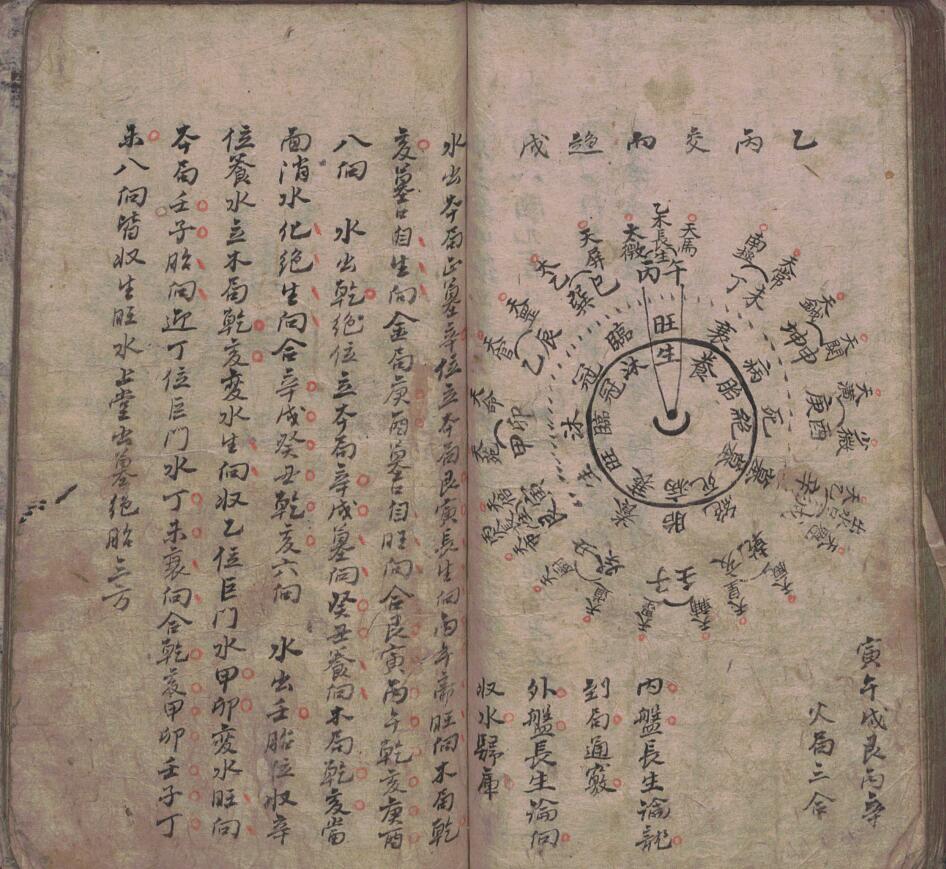 乙丙交而趋戌
寅午戌艮丙辛
火局三合
内盤長生論龍
到局通竅
外盤長生論向
収水歸庫
乙未長生
丙午
天馬
丁未
南極
天常
坤申
天關
庚酉
天漢
少微
辛戌
乾亥
天皇
天輔
壬子
癸丑
艮寅
甲卯
天命
乙辰
天官
巽巳
天乙
天屏
太微
旺
衰
病
死
墓
絶
胎
養
生
沐
冠
臨
生
養
胎
絶
墓
死
病
衰
旺
臨
冠
沐
水出本局正墓辛位立本局艮寅長生向丙午帝旺向木局乾
亥墓口自生向金局庚酉墓口自旺向合艮寅丙午乾亥庚酉
八向　水出乾絶位立本局辛戌墓向癸丑養向木局乾亥當
面消水化絶生向合辛戌癸丑乾亥六向　水出壬胎位収辛
位養水立木局乾亥変水生向収乙位巨門水甲卯変水旺向
本局壬子胎向迎丁位巨門水丁未衰向合乾亥甲卯壬子丁
未八向皆収生旺水上堂出墓絶胎三方